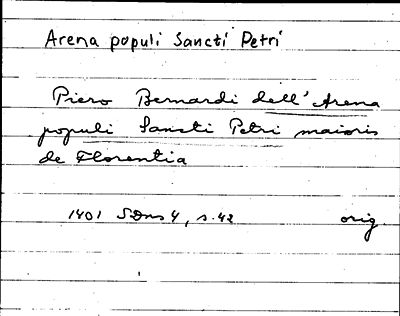 Arena populi Sancti Petri
Piero Bernardi dell'Arena
populi Sancti Petri maioris
de Florentia
1401 SDns 4, s. 42 orig.